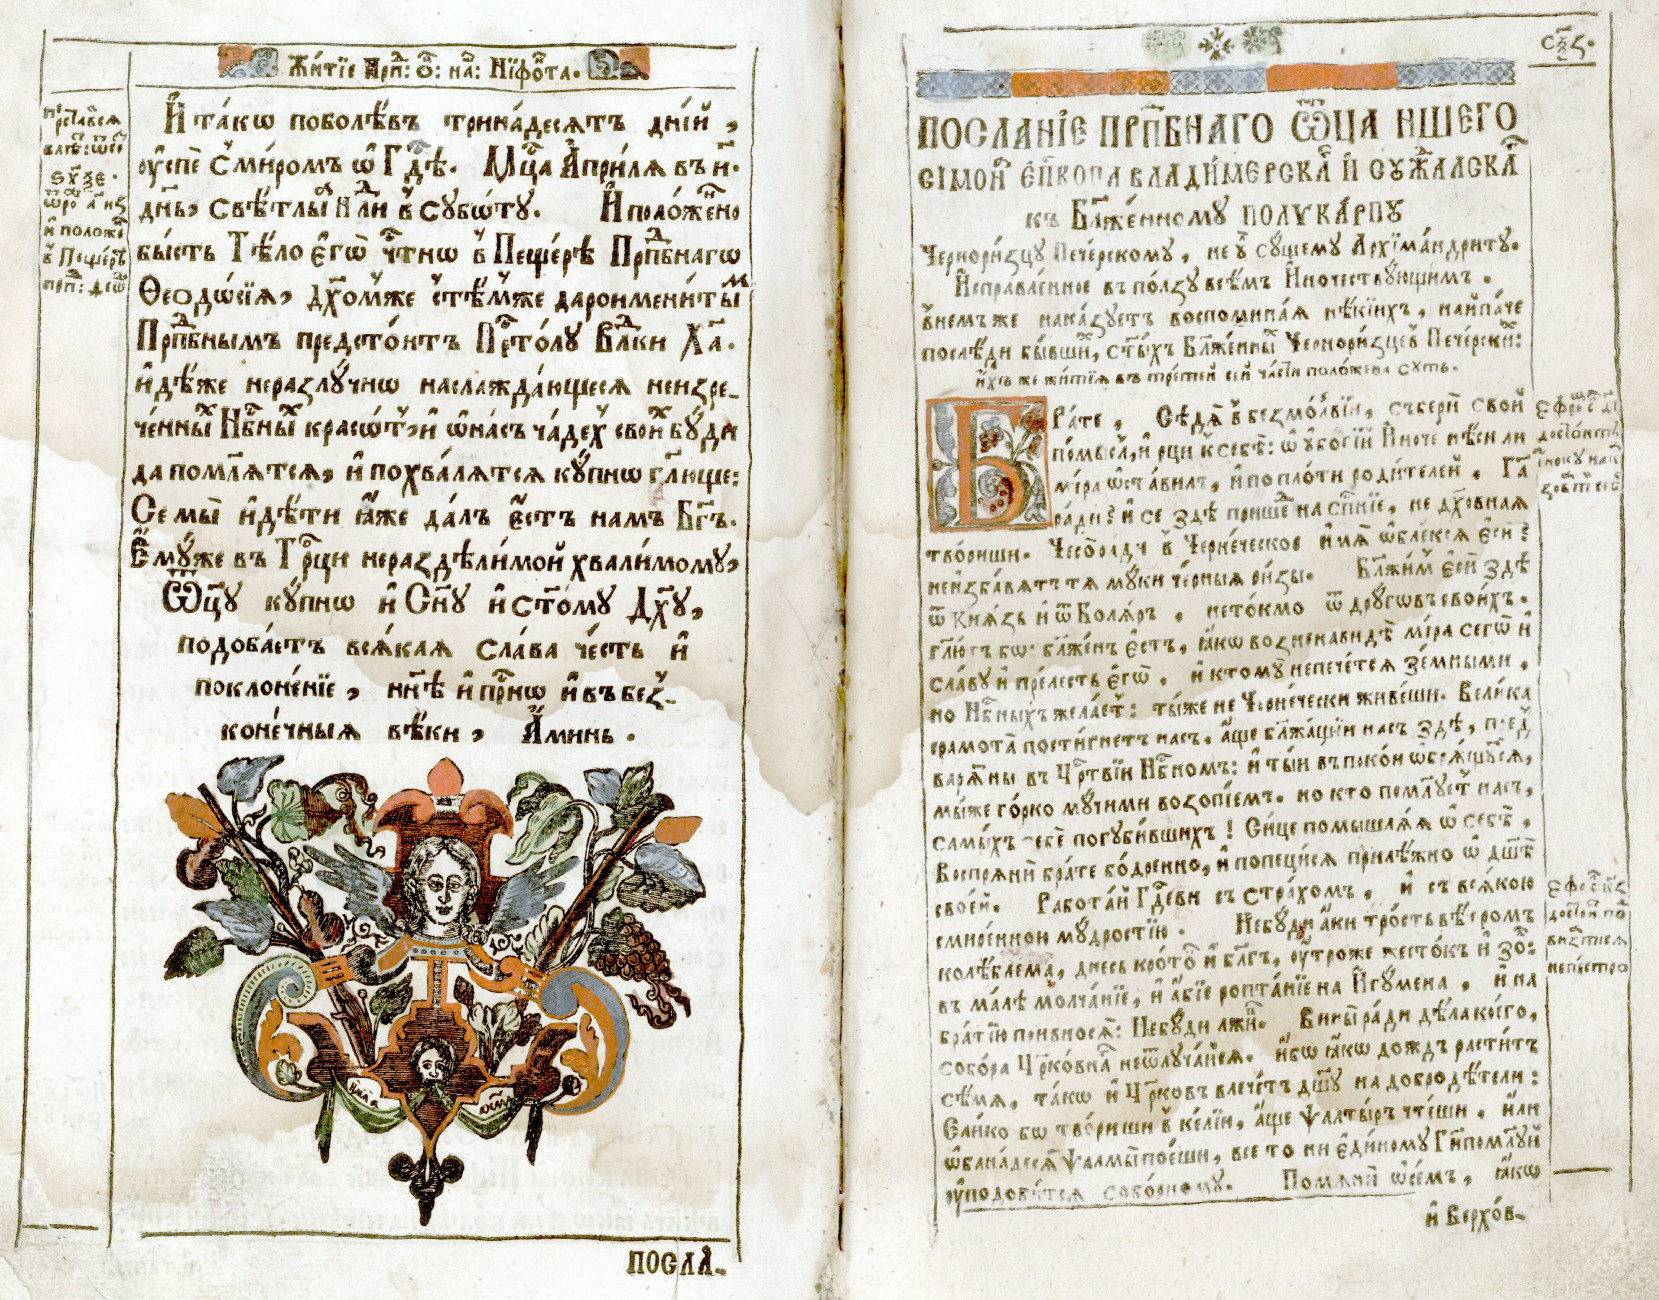 Жи́тїе Прп: Ѻ҃: на: Нїфо́нта.
Преставися
в лѣ:
҂ѕ҃х҃ѯ҃е.
и положе
в Пещерѣ
прп:
И҆ та́кѡ поболѣ́въ трина́десять дні́й,
оу҆спѐ с̾ми́ромъ ѡ҆ Гдⷭ҇ѣ. Мцⷭ҇а А҆прі́ля въ и҃.
дн҃ь, свѣ́тлыѧ Нлⷣи в̾ сꙋбѡ́тꙋ. И҆ поло́жено
бы́сть Тѣ́ло є҆гѡ̀ чⷭ҇тнѡ в̾ Пеще́рѣ Прпⷣбнагѡ
Ѳеодѡ́сїя, дх҃ом̾же с̾тѣ́м̾же дароимени́тым
Прпⷣбнымъ предстои́тъ Прⷭ҇то́лꙋ Влⷣки Ха҃.
и҆дѣ́же неразлꙋ́чнѡ наслажда́ющеся неизре-
че́нныⷯ Нбⷭ҇ныⷯ красѡ́т̾, и҆ ѡ҆ на́съ ча́дех̾ свои́ⷯ бꙋ́ди
да помл҃ятся, и҆ похва́лятся кꙋ́пнѡ гл҃юще:
Се мы̀ и҆ дѣ́ти ꙗ҆́же да́лъ є҆́стъ намъ Бг҃ъ.
Є҆мꙋ́же въ Трⷪ҇ци нераздѣли́мой хвали́момꙋ,
Ѿцꙋ̀ кꙋ́пнѡ и҆ Сн҃ꙋ и҆ ст҃о́мꙋ Дх҃ꙋ,
подоба́етъ вся́кая сла́ва че́сть и҆
поклоне́нїе, нн҃ѣ и҆ при́снѡ и҆ въ без̾-
коне́чныя вѣ́ки, А҆ми́нь.
ПОСЛА̀-
с҃ѯ҃ꙅ.
ПОСЛАНІЕ ПРПⷣБНАГО ѾЦА НШЕГО
СІМОН Є҆Пⷭ҇КОПА ВЛАДИ́МЕРСКА И҆ СꙊЖДАЛСКА
къ Бл҃же́нномꙋ ПОЛꙊКА́РПꙊ
Черноризцꙋ Пече́рскомꙋ, не ꙋ҆̀ сꙋ́щемꙋ Архїма́ндритꙋ.
И҆справле́нное въ по́лзꙋ всѣ́мъ И҆ночествꙋ́ющимъ.
в̾немъ же нака́зꙋетъ воспомина́я нѣ́кїихъ, наипа́че
послѣди́ бы́вшиⷯ, ст҃ы́хъ Бл҃же́нныⷯ Черноризцев̾ Пече́рски:
и҆́хъ же жи́тїя въ тре́тей сей ча́сти поло́жена сꙋть.
БРА́те, Сѣдя̀ в̾ безмо́лвїи, съберѝ сво́й
по́мысл, и҆ рци к̾ себѣ̀: ѡ҆ ᲂу҆бо́гїй И҆но́че нѣ́си ли
мі́ра ѡ҆ста́вилъ, и҆ по пло́ти роди́телей, Гдⷭ҇а
ра́ди? и҆ се здѣ̀ прише́д на спⷭ҇нїе, не дх҃о́вная
твори́ши. Чесо́ ради в̾ Черне́ческое и҆́мя ѡ҆бле́кся є҆сѝ?
неи҆зба́вятъ тя мꙋ́ки че́рныя ри́зы. Бл҃жи́м є҆сѝ здѣ̀
ѿ Кня́зь и҆ ѿ Боля́ръ, не то́кмо ѿ дрꙋ́говъ свои́хъ.
гл҃ютъ бо: бл҃же́нъ є҆́стъ, ꙗ҆́кѡ возненави́дѣ мі́ра сегѡ̀ и҆
сла́вꙋ и҆ пре́лесть є҆гѡ̀, и҆ ктомꙋ̀ непече́тся зе́мными,
но Нбⷭ҇ныхъ жела́ет: ты́же не Черне́чески живе́ши. Вели́ка
срамота̀ пости́гнетъ насъ. а҆́ще бл҃жа́щїи насъ здѣ̀, пред̾
варя́тъ ны въ Црⷭ҇твїи Нбⷭ҇номъ: и҆ ты́и въ поко́и ѡ҆бря́щꙋтся,
мы́же го́рко мꙋ́чими возопїе́мъ. но кто поми́лꙋет насъ,
сами́хъ себѐ погꙋби́вшихъ! Си́це помышля́я ѡ҆ себѣ̀,
Воспрянѝ бра́те бо́дренно, и҆ попеци́ся прилѣ́жно ѡ҆ дш҃ѣ̀
свое́й. Рабо́тай Гдⷭ҇еви съ стра́хомъ, и҆ съ вся́кою
смире́нною мꙋ́дростїю. Небꙋ́ди а҆́ки тро́сть вѣ́тромъ
колѣ́блема, днесь кро́ток и҆ бл҃гъ, ᲂу҆́троже жесто́къ и҆ зо́л:
въ ма́лѣ молча́нїе, и҆ а҆́бїе ропта́нїе на И҆гꙋ́мена, и҆ на
бра́тїю приноси́: Небꙋ́ди лжи́в. Вины̀ ра́ди дѣ́ла ко́его,
собо́ра Цр҃ко́внаго неѿлꙋча́йся. и҆́бо ꙗ҆́кѡ дождъ расти́тъ
сѣ́мя, та́кѡ и҆ Цр҃ковъ влече́тъ дш҃ꙋ̀ на добродѣ́тели:
Є҆ли́ко бо твори́ши в̾ ке́лїи, а҆́ще ѱалты́ръ чте́ши, и҆ли
ѡ҆бана́десять ѱалмы̀ пое́ши, все то ни є҆ди́номꙋ Гдⷭ҇и поми́лꙋй
ᲂу҆подо́бится собо́рномꙋ. Помянѝ ѡ҆ се́мъ, ꙗ҆́кѡ
и҆ Верхо́в-